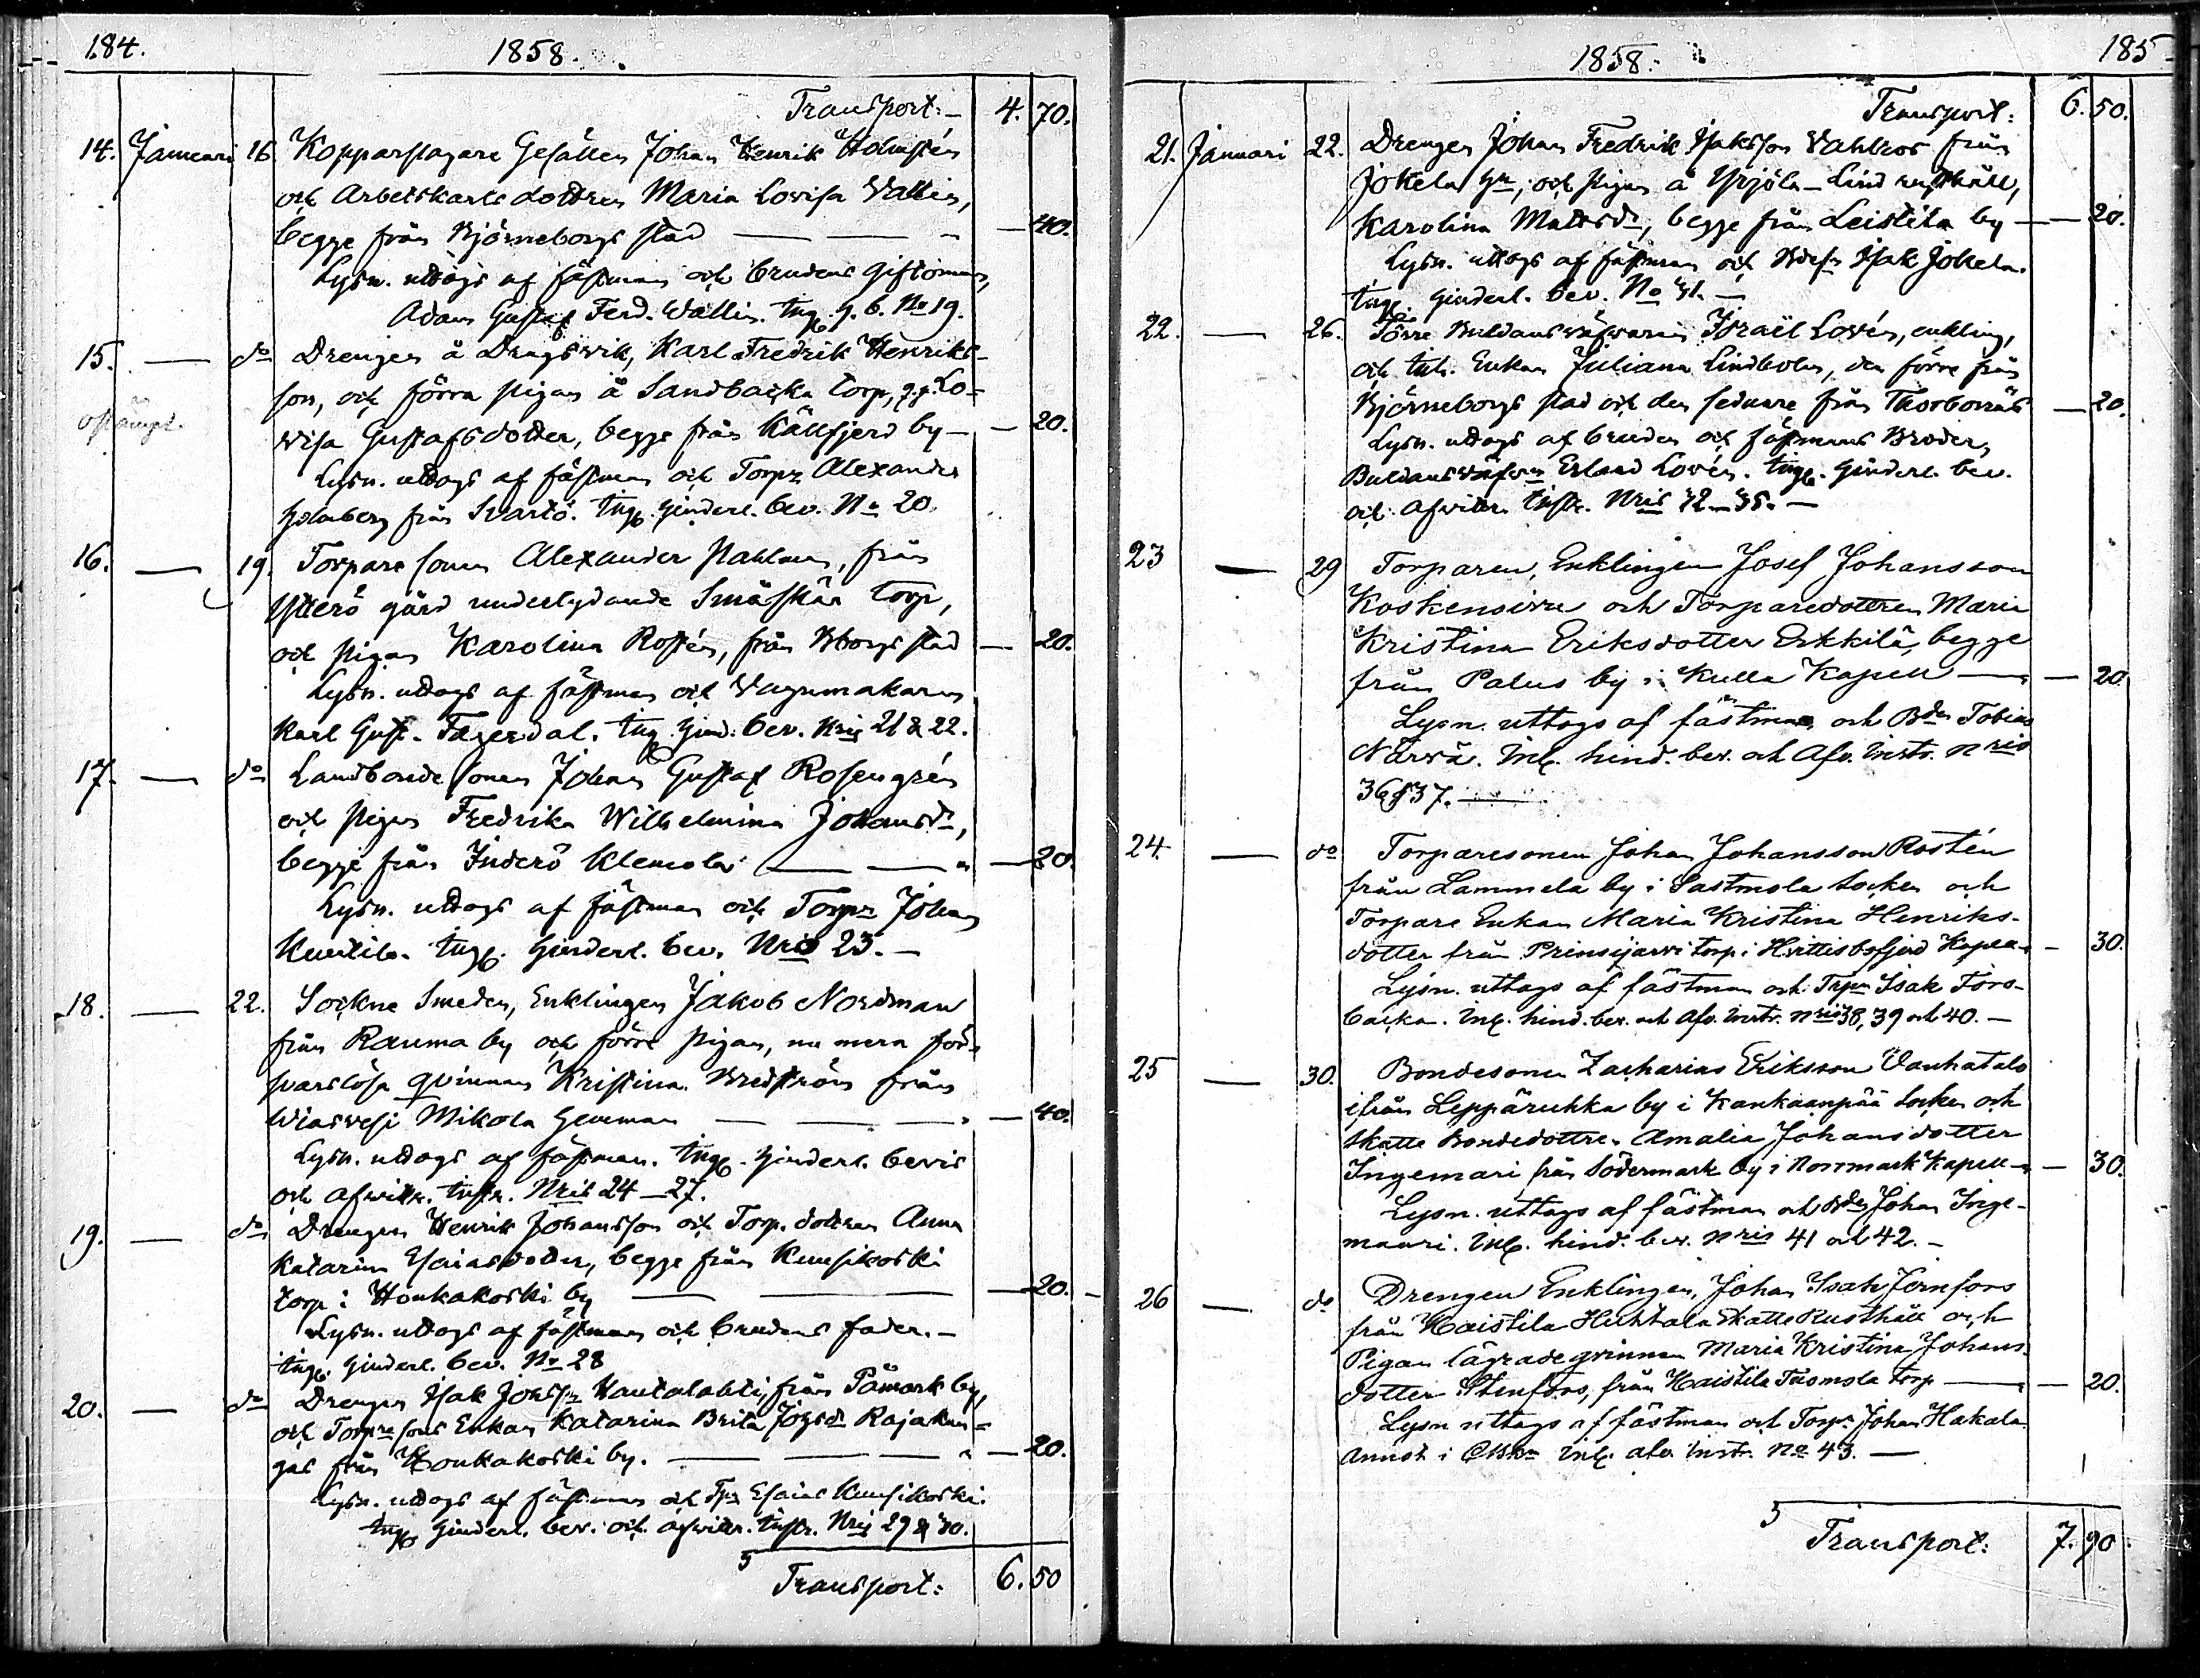 184.
1858.
Transport:- 4. 70.
14. Januari 16. Kopparslagare Gesällen Johan Henrik Holmstén
och Arbetskarls dottren Maria Lovisa Vallin,
begge från Björneborgs stad — — " — 40.
Lysn. uttogs af fästman och brudens giftoman,
Adam Gustaf Ferd. Wallin. Ing. h. b. No 19.
15. — do Drengen å Dragsvik, Karl Fredrik Henriks-
son, och förra pigan å Sandbacka torp, Lo-
visa Gustafsdotter, begge från Källfjerd by — — 20.
Lysn. uttogs af fästman och Torpn Alexander
Holmberg från Svartö. Ing. hinderl. bev. No 20.
16. — 19. Torpare sonen Alexander Stahlman, från
Ytterö gård underlydande Småskär torp,
och pigan Karolina Rostén, från Bborgs stad — 20.
Lysn. uttogs af fästman och Vagnmakaren
Karl Gust. Fagerdal. Ing. hind. bev. Nris 21 & 22.
17. — do Landbonde sonen Johan Gustaf Rosengrén
och pigan Fredrika Wilhelmina Johansdr,
begge från Inderö Klemola — — " — 20.
Lysn. uttogs af fästman och Torpn Johan
Knuutila. Ing. hinderl. bev. Nris 23. —
18. — 22. Sockne Smeden, Enklingen Jakob Nordman
från Rauma by och förre pigan, nu mera för-
svarslösa qvinnan Kristina Bredström från
Wiasvesi Mikola hemman — — — 40.
Lysn. uttogs af fästman. Ing. hinderl. bevis
och afvittr. instr. Nris 24 — 27.
19. — do Drengen Henrik Johansson och Torp. dottren Anna
Katarina Esaiasdotter, begge från Kuusikoski
torp i Honkakoski by — — — 20. -
Lysn. uttogs af fästman och brudens fader. —
Ing. hinderl. bev. No 28
20. — do Drengen Isak Johsson Hautalahti, från Påmark by,
och Torpre sons Enkan Katarina Brita Johsdr Rajakan-
gas från Honkakoski by. — — " — 20.
Lysn. uttogs af fästman och Tpn Esaias Kuusikoski.
Ing. hinderl. bev. och afvittr. instr. Nris 29 & 30.
Transport: 6. 50
185
1858.
Transport: 6. 50.
21. Januari 22. Drengen Johan Fredrik Isaksson Vahlroos från
Jokela hn, och pigan å Yrjölä-Lind rusthåll,
Karolina Matsdr, begge från Leistilä by — — 20.
Lysn. uttogs af fästman och Bden Isak Jokela.
Ing. hinderl. bev. No 31. —
22. — 26. Förre Buldansväfvaren Israël Lovén, enkling,
och Inh. Enkan Juliana Lindholm, den förre från
Björneborgs stad och den sednare från Thorbonäs — 20.
Lysn. uttogs af bruden och fästmans Broder,
Buldansväfvn Erland Lovén. Ing. hinderl. bev.
och afvittr. instr. Nris 32—35. —
23 — 29 Torparen, Enklingen Josef Johansson
Koskensivu och Torparedottren Maria
Kristina Eriksdotter Erkkilä, begge
från Palus by i Kulla Kapell — — 20
Lysn. uttogs af fästman och Bden Tobias
Närvä. Inl. hind. bev. och Afv. Instr. Nris
36 & 37. —
24. — do Torparesonen Johan Johansson Rostén
från Lammela by i Sastmola Socken och
Torpare Enkan Maria Kristina Henriks-
dotter från Prinsijärvi torp i Hvittisbofjerd Kapell — 30.
Lysn. uttogs af fästman och Trpn Isak Fors-
backa. Inl. hind. bev. och Afv. Instr. Nris 38, 39 och 40. —
25 — 30. Bondesonen Zacharias Eriksson Vanhatalo
ifrån Leppäruhka by i Kankaanpää Socken och
Skatte Bondedottren Amalia Johansdotter
Ingemari från Södermark by i Norrmark Kapell — 30.
Lysn. uttogs af fästman och Bden Johan Inge-
maari. Inl. hind. bev. Nris 41 och 42. —
26 — do Drengen Enklingen, Johan Isak Jernfors
från Haistila Huhtala Skatte Rusthåll och
Pigan lägrade qvinnan Maria Kristina Johans-
dotter Stenfors, från Haistila Tuomola torp — — 20.
Lysn uttogs af fästman och Torpn Johan Hakala
Inl. afv. Instr. No 43. —
Transport: 7. 90